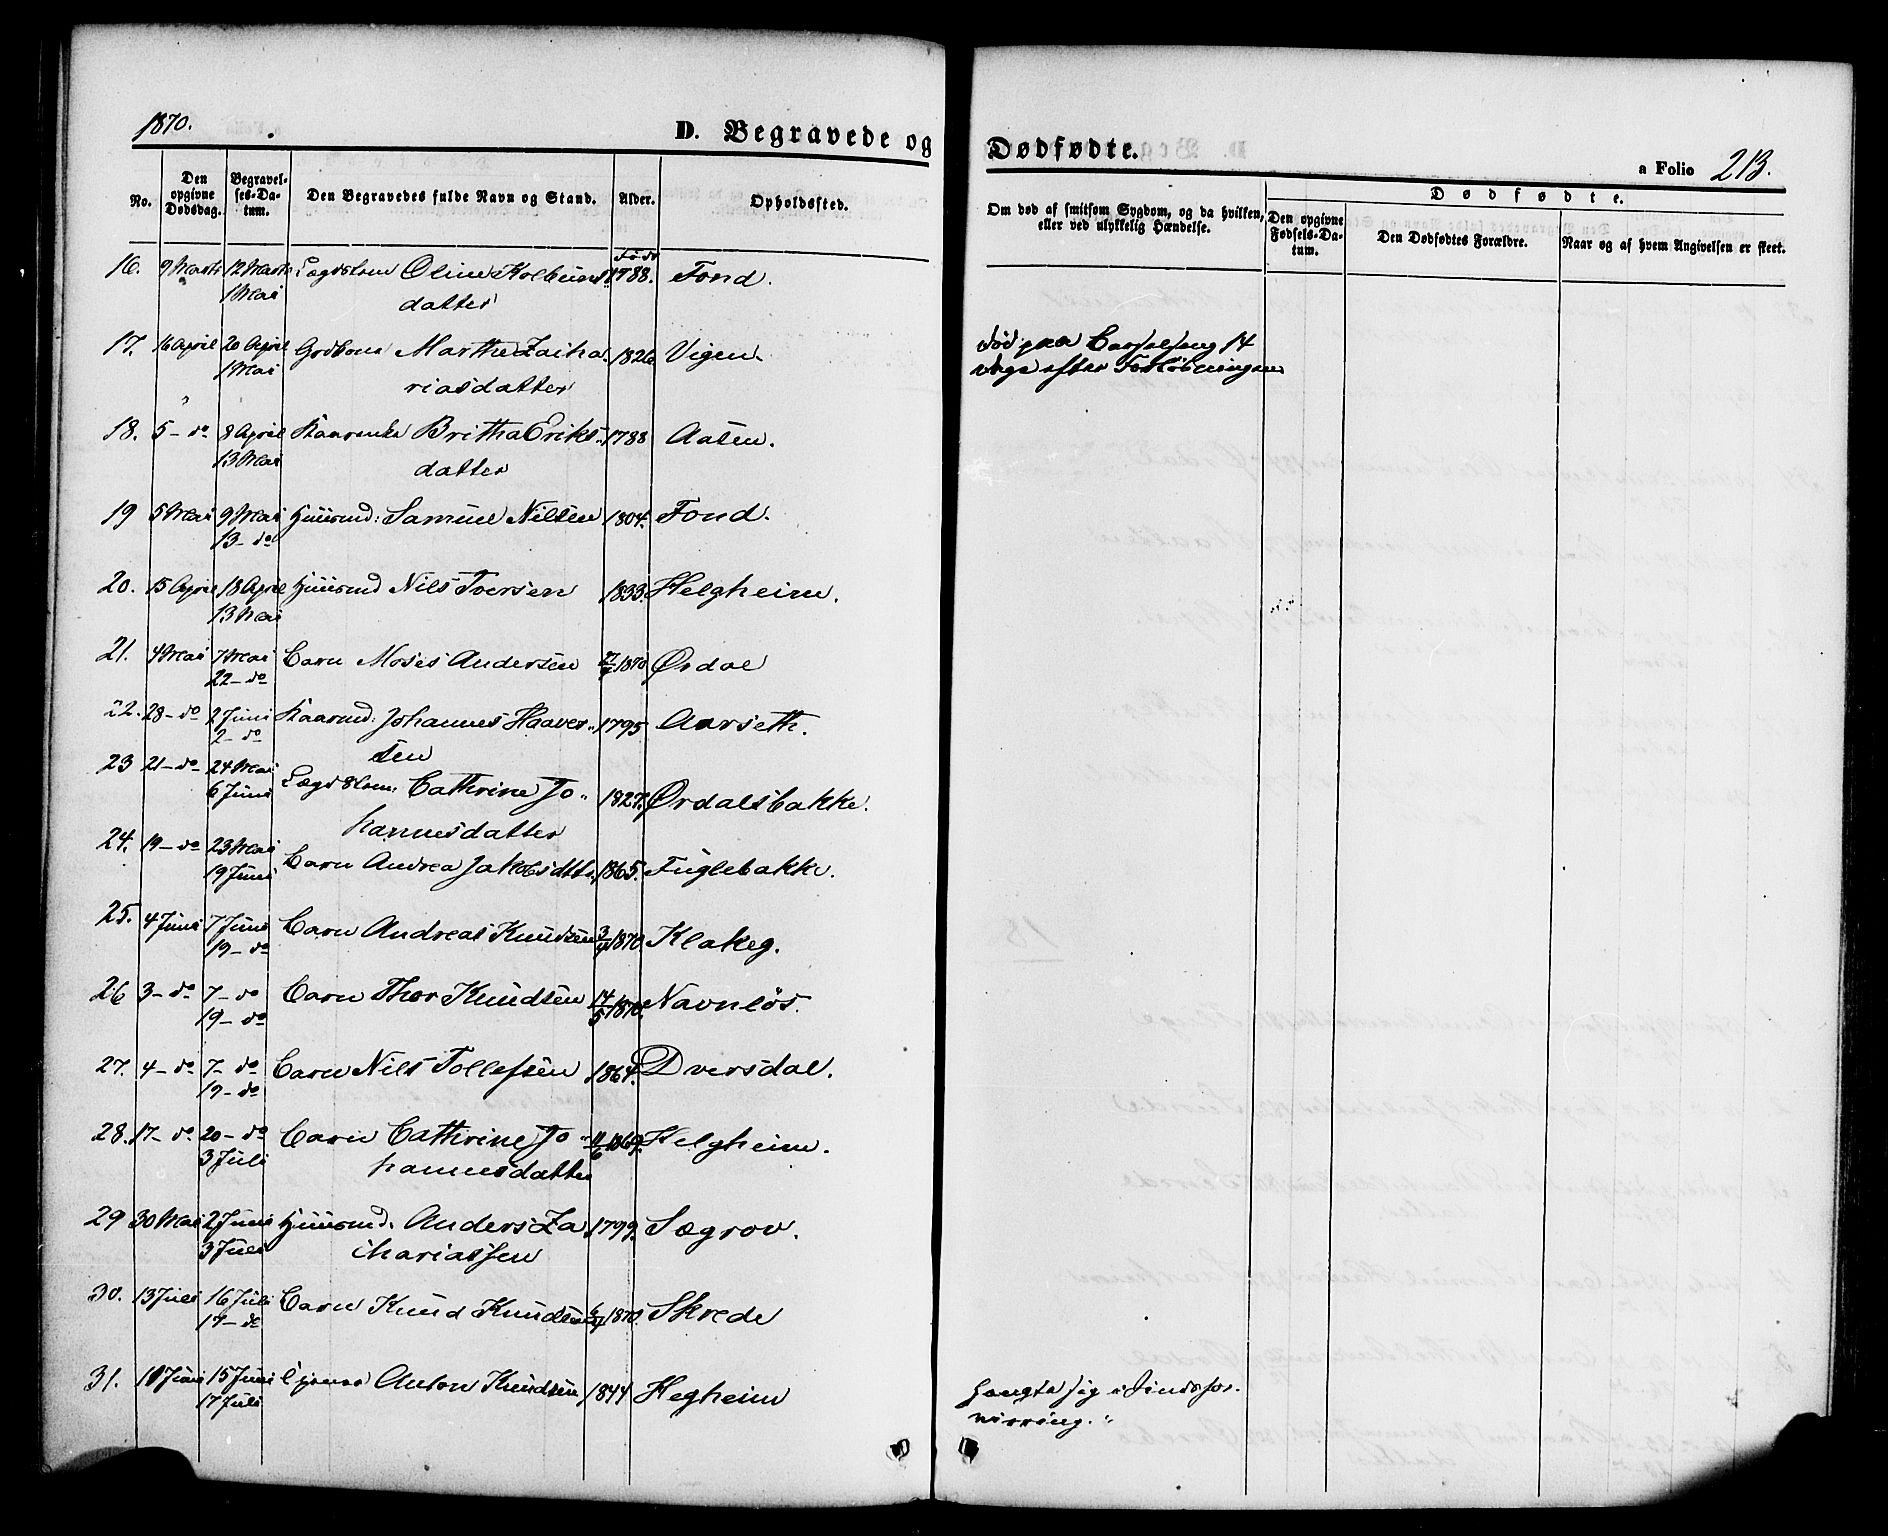 1870.
D. Begravede og
Dødfødte.
a Folio 213.
No.
Den opgivne Dødsdag.
Begravelses-Datum.
Den Begravedes fulde Navn og Stand.
Alder.
Opholdssted.
Om død af smitsom Sygdom, og da hvilken, eller ved ulykkelig Hændelse.
Dødfødte.
Den opgivne Fødsels-Datum.
Den Dødfødtes Forældre.
Naar og af hvem Angivelsen er skeet.
Född
16. 9 Marts 12 Marts Lægdslem Oline Kolbeins 1788. Fond.
1 Mai datter
17. 16 April 20 April Grdkone Marthe Zacha 1826 Vigen. død paa Barselseng 14
1 Mai riasdatter dage efter Forløsningen
18. 5 - do 8 April Kaarenke Britha Eriks 1788 Aasen.
13 Mai datter
19 5 Mai 9 Mai Huusmd: Samuel Nilsen 1804. Fond.
13 - do
20. 15 April 18 April Huusmd Nils Iversen 1833. Helgheim.
13 Mai
21. 4 Mai 7 Mai Barn Moses Andersen 1870 Ørdal
22 - do
22. 28 - do 2 Juni Kaarmd: Johannes Haaver 1795 Aarseth.
2 - do sen
23 21 - do 24 Mai Lægdslem, Cathrine Jo 1827. Ørdalsbakke.
6 Juni hannesdatter
24. 19 - do 23 Mai Barn Andrea Jakobsdttr 1865. Fuglebakke.
19 Juni
25. 4 Juni 7 Juni Barn Andreas Knudsen 3/4 1870. Klakeg.
19 - do
26 3 - do 7 - do Barn Thor Knudsen 14/5 1870. Navnløs.
19 - do
27. 4 - do 7 - do Barn Nils Tollefsen 1864. Dversdal.
19 - do
28. 17 - do 20 - do Barn Cathrine Jo 11/6 1869. Helgheim.
3 Juli hannesdatter
29 30 Mai 2 Juni Huusmd: Anders Za 1799. Sægrov.
3 Juli chariassen
30. 13 Juli 16 Juli Barn Knud Knudsen 1870. Skrede
17 - do
31. 11 Juni 15 Juni Tjener Anton Knudsen 1844 Hegheim hængte sig i Sindsfor-
17 Juli virring.